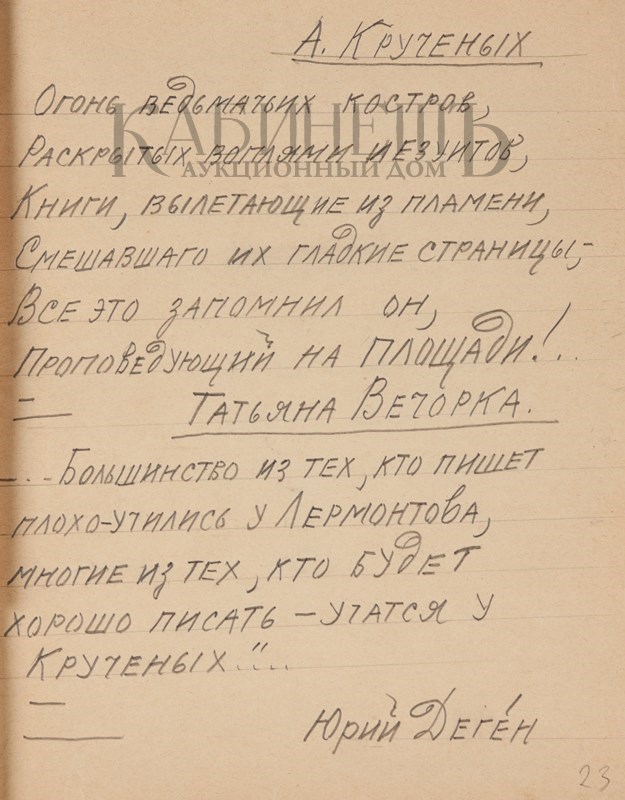 А. Крученых
Огонь ведьмачьих костров,
Раскрытых воплями иезуитов,
Книги, вылетающие из пламени,
Смешавшаго их гладкие страницы,-
Все это запомнил он,
Проповедующий на площади!..
Татьяна Вечорка.
...Большинство из тех, кто пишет
плохо-учились у Лермонтова,
многие из тех, кто будет
хорошо писать – учатся у
Крученых."...
Юрий Деген
23
КАБИНЕТЪ
АУКЦИОННЫЙ ДОМ